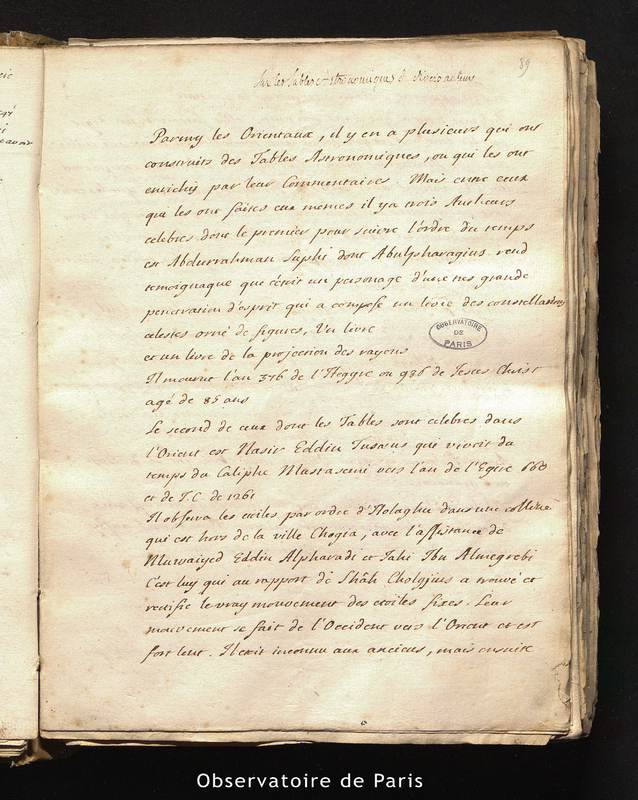 89
Sur les Tables Astronomiques de divers auteurs
Parmy les Orientaux, il y en a plusieurs qui ont
construits des Tables Astronomiques, ou qui les ont
enrichis par leur Commentaires. Mais entre ceux
qui les ont faites eux memes il y a trois Autheurs
celebres dont le premier pour suivre l'ordre du temps
est Abdurrahman Suphi dont Abulpharagius rend
temoignage que c'etoit un personage d'une tres grande
penetration d'esprit qui a composé un livre des constellations
celestes orné de figures, Un livre
et un livre de la projection des rayons
Il mourut l'an 376 de l'Hegyre ou 986 de Jesus Christ
agé de 85 ans
Le second de ceux dont les Tables sont celebres dans
l'Orient est Nasir Eddin Tusaeus qui vivoit du
temps du Caliphe Mustasemi vers l'an de l'Egire 660
et de J.C. de 1261
Il observa les etoiles par ordre d'Holaghu dans une colline
qui est hors de la ville Chogia, avec l'assistance de
Muwaiyed Eddin Alpharadi et Jahi Ibn Almegrebi
C'est luy qui au rapport de Shâh Cholgius a trouvé et
rectifié le vray mouvement des etoiles fixes. Leur
mouvement se fait de l'Occident vers l'Orient et est
fort lent. Il etoit inconnu aux anciens, mais ensuite
OBSERVATOIRE
DE
PARIS
Observatoire de Paris